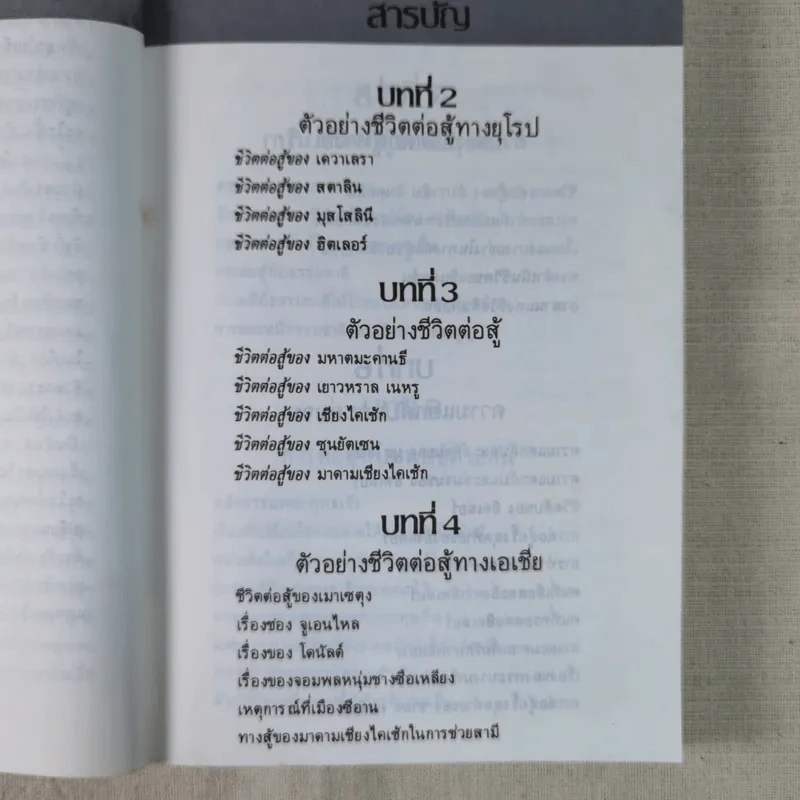 สารบัญ
บทที่ 2
ตัวอย่างชีวิตต่อสู้ทางยุโรป
ชีวิตต่อสู้ของ เดวาเลรา
ชีวิตต่อสู้ของ สตาลิน
ชีวิตต่อสู้ของ มุสโสลินี
ชีวิตต่อสู้ของ ฮิตเลอร์
บทที่ 3
ตัวอย่างชีวิตต่อสู้
ชีวิตต่อสู้ของ มหาตมะคานธี
ชีวิตต่อสู้ของ เยาวหราล เนหรู
ชีวิตต่อสู้ของ เชียงไคเช้ก
ชีวิตต่อสู้ของ ซุนยัตเซน
ชีวิตต่อสู้ของ มาดามเชียงไคเช้ก
บทที่ 4
ตัวอย่างชีวิตต่อสู้ทางเอเชี่ย
ชีวิตต่อสู้ของเมาเซตุง
เรื่องของ จูเอนไหล
เรื่องของ โดนัลด์
เรื่องของจอมพลหนุ่มชางซือเหลียง
เหตุการณ์ที่เมืองซีอาน
ทางสู้ของมาดามเชียงไคเช้กในการช่วยสามี